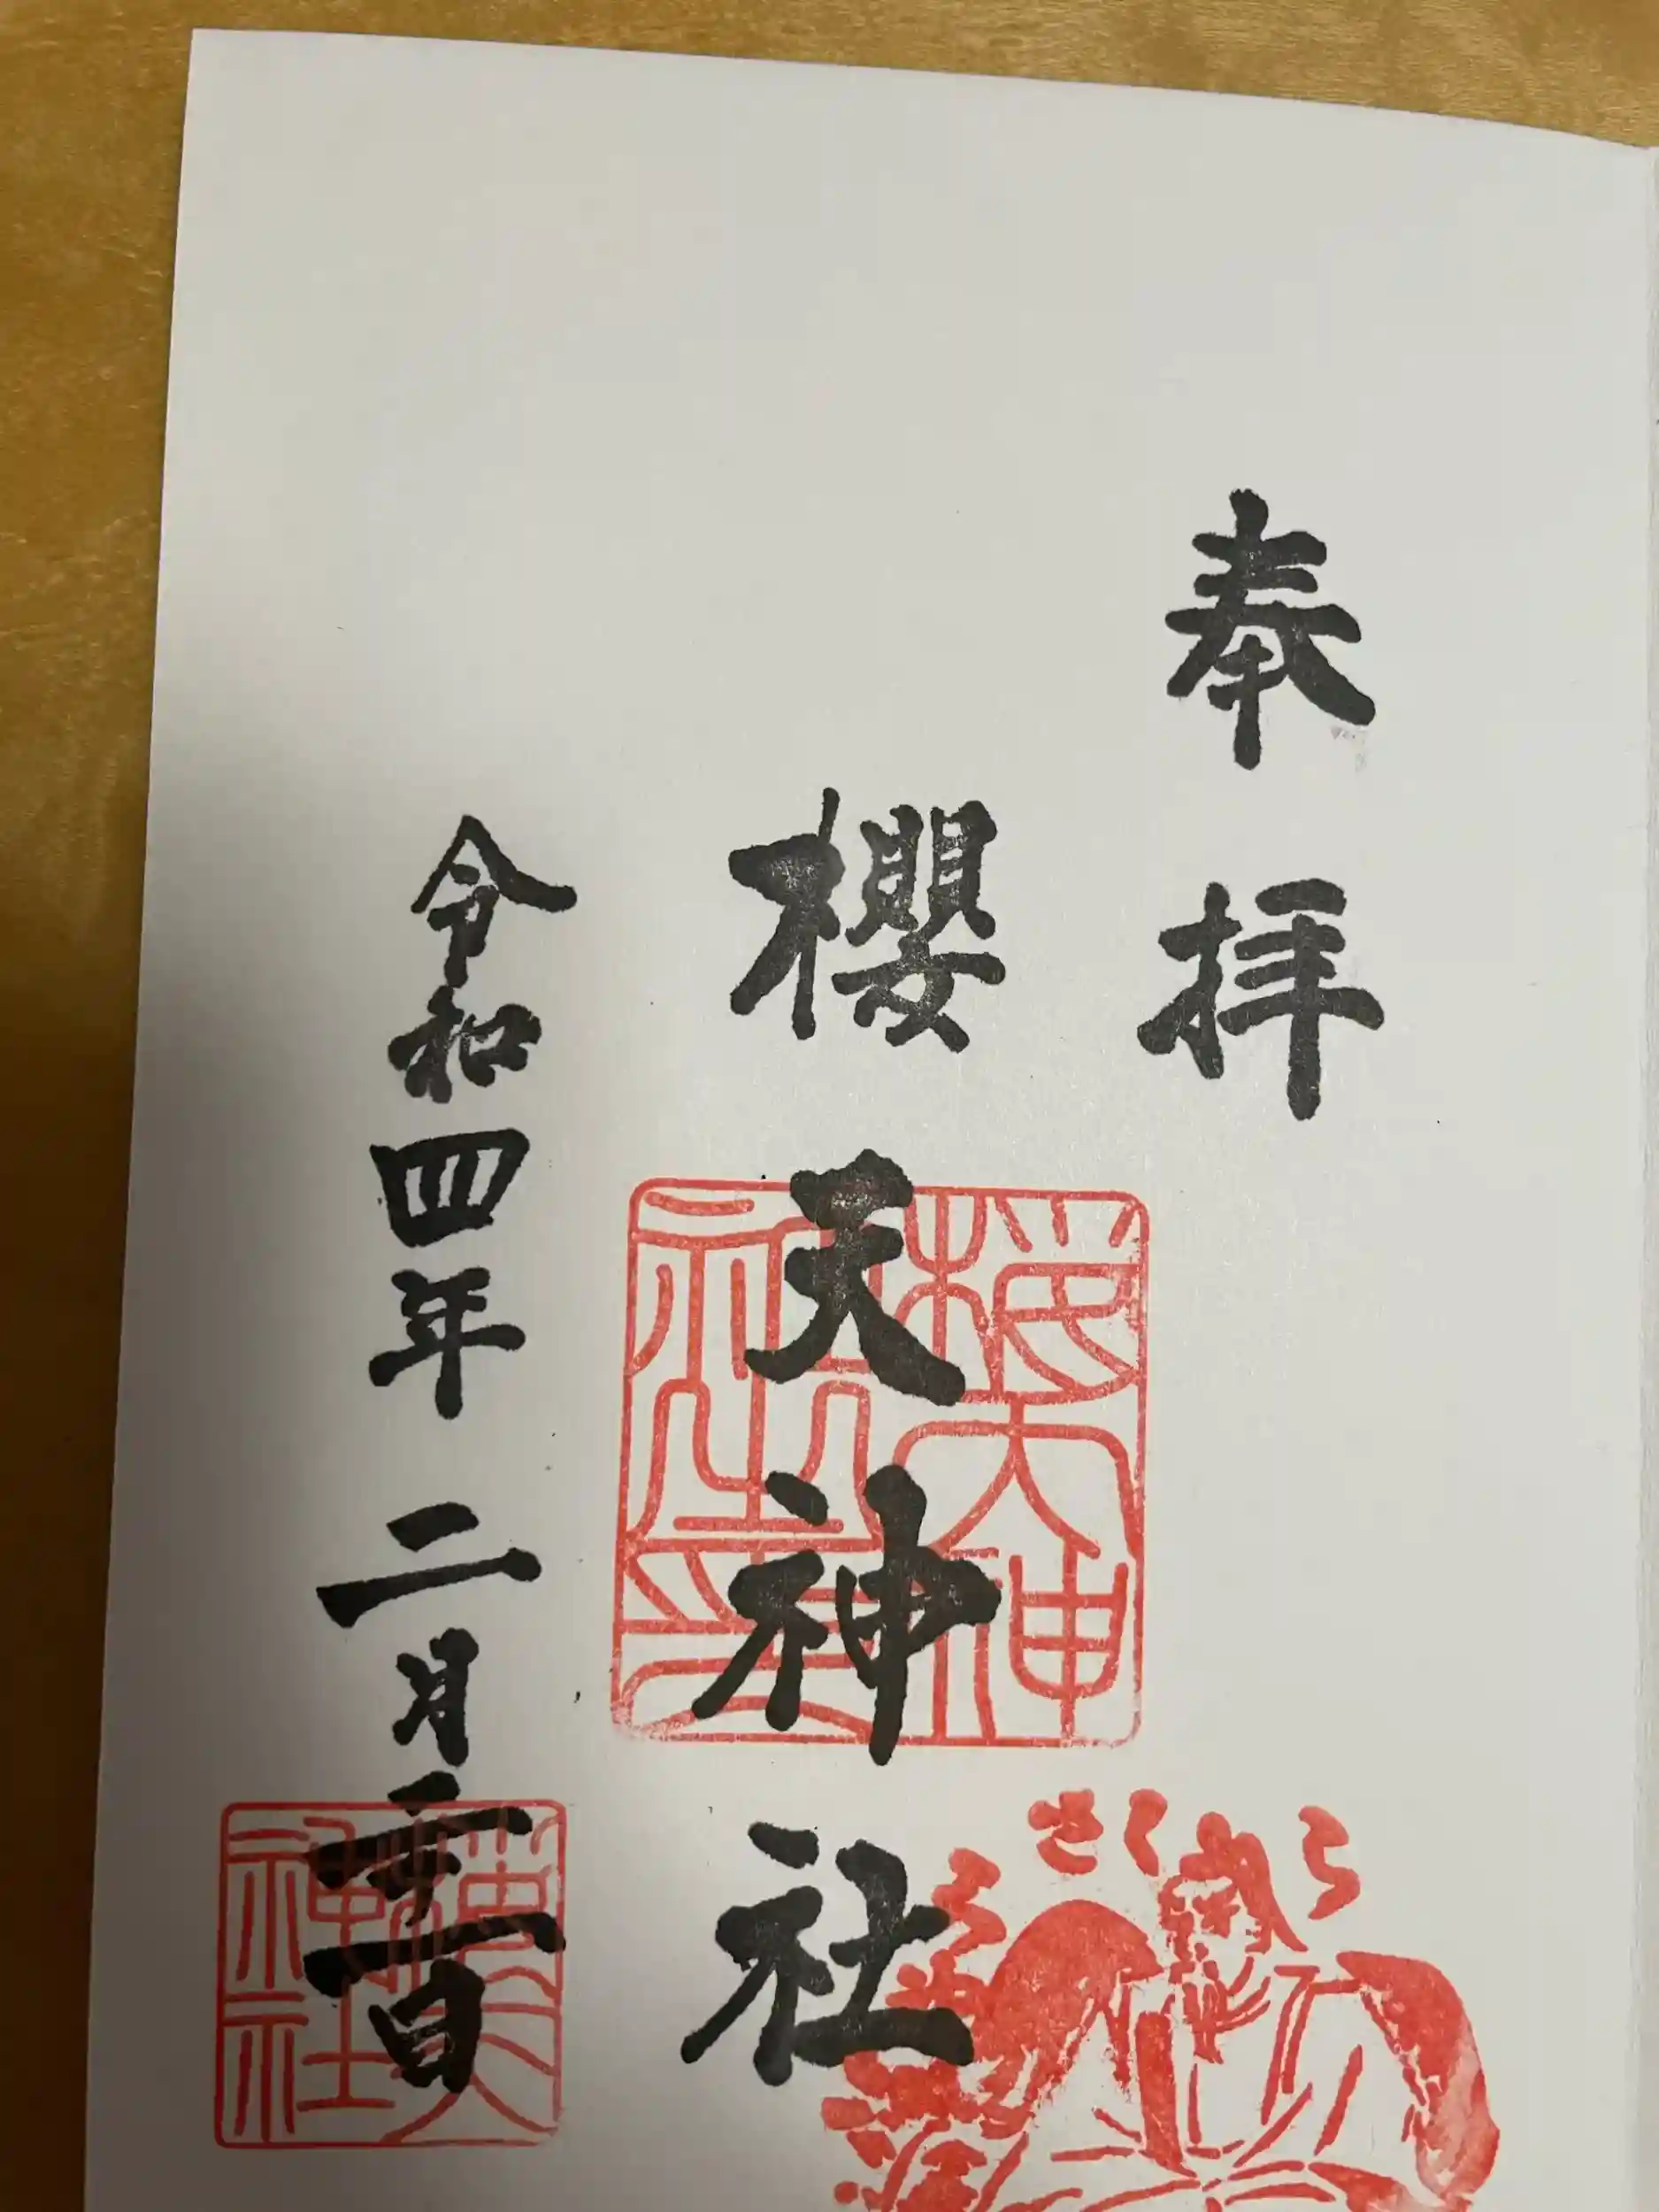 奉拝
櫻天神社
櫻天神社之印
さくら
令和四年二月二十一日
櫻天神社